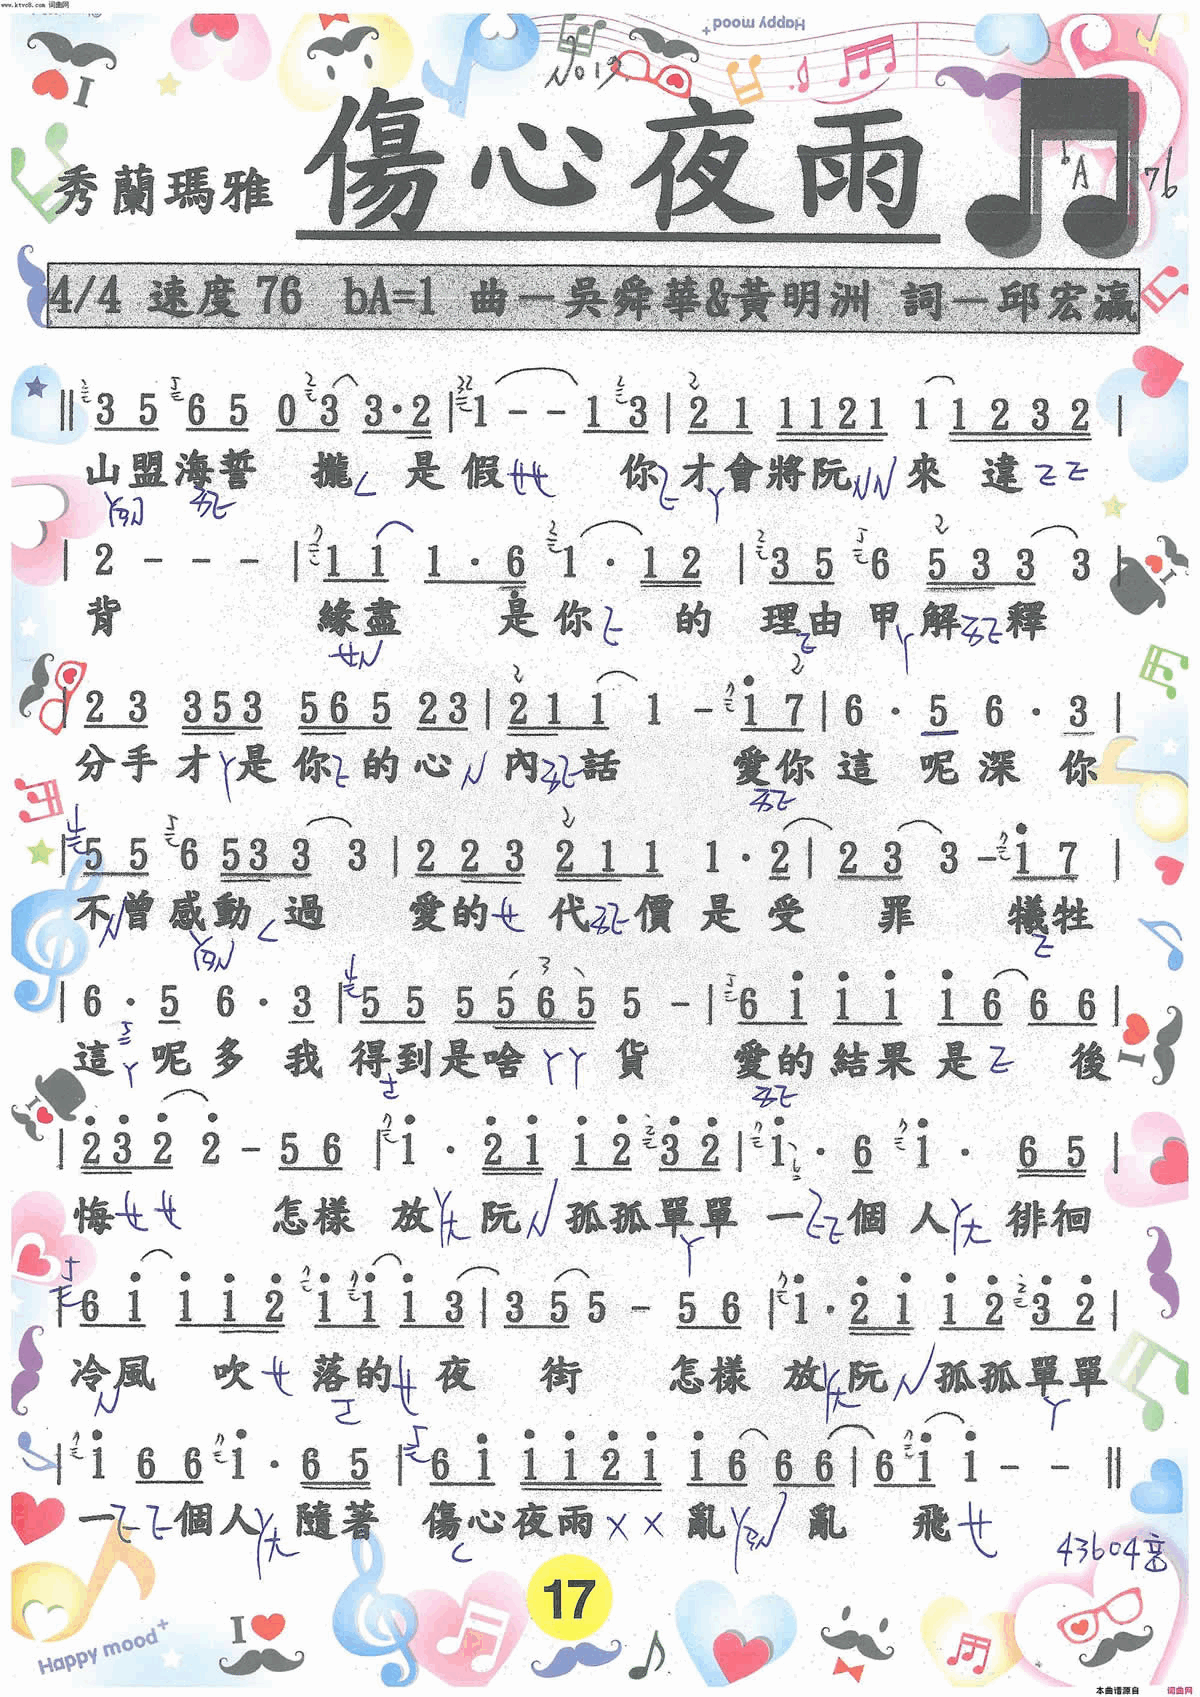 www.ktvc8.com 词曲网
Happy mood+
No 19
傷心夜雨
秀蘭瑪雅
bA 76
4/4 速度 76 bA=1 曲－吳舜華&黃明洲 詞－邱宏瀛
‖ 3 5 6 5 0 3 3·2 | 1 - - 1 3 | 2 1 1121 1 1 2 3 2 |
山盟海誓 攏ㄑ 是假ㄝㄝ 你ㄛ才會將阮ㄣㄣ來 違ㄛㄛ
| 2 - - - | 1 1 1 · 6 1 · 1 2 | 3 5 6 5 3 3 3 |
背 緣盡 是你 的 理由 甲 解 釋
| 2 3 3 5 3 5 6 5 2 3 | 2 1 1 1 - 1 7 | 6 · 5 6 · 3 |
分手 才ㄚ是 你 的心ㄣ 內 話 愛你 這 呢深 你
| 5 5 6 5 3 3 3 | 2 2 3 2 1 1 1 · 2 | 2 3 3 - 1 7 |
不曾感動ㄑ過 愛的ㄝ 代 價 是 受 罪 犧牲
| 6 · 5 6 · 3 | 5 5 5 5 6 5 5 - | 6 1 1 1 1 6 6 6 |
這ㄚ呢多 我 得到是啥ㄚㄚ 貨 愛的結果是 後
| 2 3 2 2 - 5 6 | 1 · 2 1 1 2 3 2 | 1 · 6 1 · 6 5 |
悔ㄝㄝ 怎樣 放 阮ㄣ孤孤單單 一 個 人 徘徊
| 6 1 1 1 2 1 1 1 3 | 3 5 5 - 5 6 | 1·2 1 1 2 3 2 |
冷風 吹ㄝ 落的ㄝ夜 街 怎樣 放 阮ㄣ孤孤單單
| 1 6 6 1 · 6 5 | 6 1 1 1 2 1 1 6 6 6 | 6 1 1 - - ‖
一 個人 隨著 傷心夜雨ㄨㄨ 亂 亂 飛ㄝ
43604音
17
I
Happy mood+
本曲谱源自 词曲网